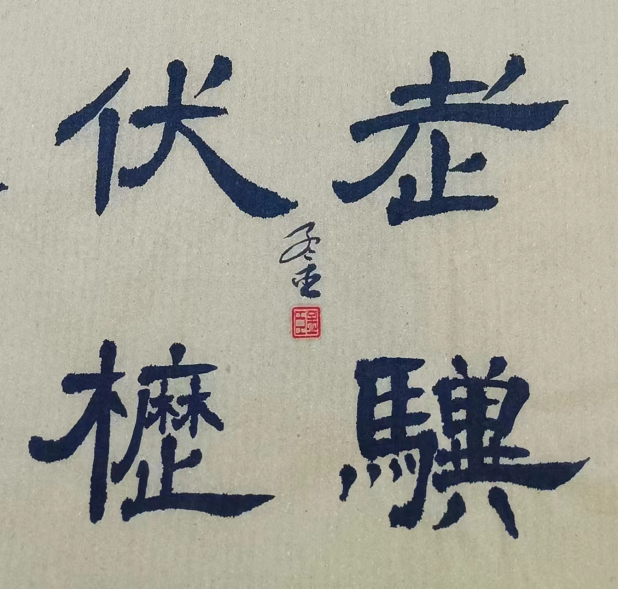 老驥
伏櫪